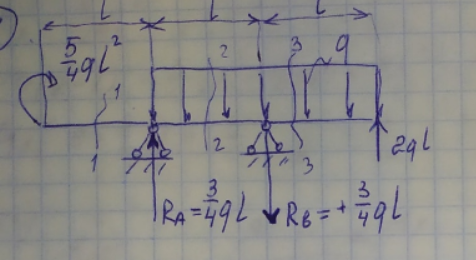 l l l
5/4 ql²
1 2 3 q
1 2 3
2ql
R_A = 3/4 ql R_B = + 3/4 ql